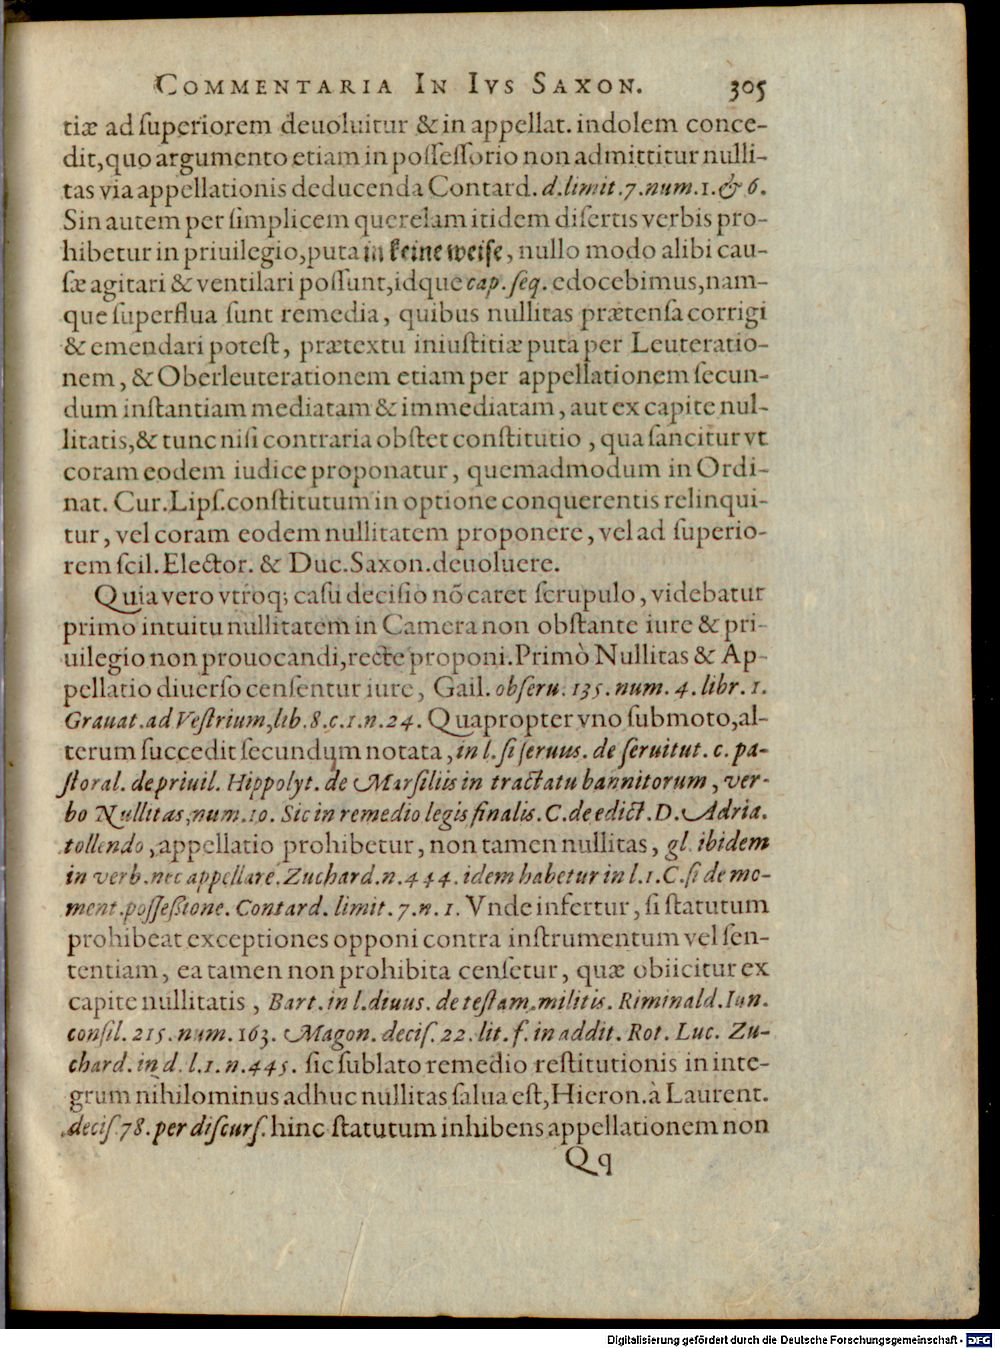 COMMENTARIA IN IVS SAXON. 305
tiæ ad ſuperiorem deuoluitur & in appellat. indolem conce-
dit, quo argumento etiam in poſſeſſorio non admittitur nulli-
tas via appellationis deducenda Contard. d. limit. 7. num. 1. & 6.
Sin autem per ſimplicem querelam itidem diſertis verbis pro-
hibetur in priuilegio, puta in keine weiſe, nullo modo alibi cau-
ſæ agitari & ventilari poſſunt, idque cap. ſeq. edocebimus, nam-
que ſuperflua ſunt remedia, quibus nullitas prætenſa corrigi
& emendari poteſt, prætextu iniuſtitiæ puta per Leuteratio-
nem, & Oberleuterationem etiam per appellationem ſecun-
dum inſtantiam mediatam & immediatam, aut ex capite nul-
litatis, & tunc niſi contraria obſtet conſtitutio, qua ſancitur vt
coram eodem iudice proponatur, quemadmodum in Ordi-
nat. Cur. Lipſ. conſtitutum in optione conquerentis relinqui-
tur, vel coram eodem nullitatem proponere, vel ad ſuperio-
rem ſcil. Elector. & Duc. Saxon. deuoluere.
Quia vero vtroq; caſu deciſio nõ caret ſcrupulo, videbatur
primo intuitu nullitatem in Camera non obſtante iure & pri-
uilegio non prouocandi, recte proponi. Primò Nullitas & Ap-
pellatio diuerſo cenſentur iure, Gail. obſeru. 135. num. 4. libr. 1.
Grauat. ad Veſtrium, lib. 8. c. 1. n. 24. Quapropter vno ſubmoto, al-
terum ſuccedit ſecundum notata, in l. ſi ſeruus. de ſeruitut. c. pa-
ſtoral. de priuil. Hippolyt. de Marſiliis in tractatu bannitorum, ver-
bo Nullitas, num. 10. Sic in remedio legis finalis. C. de edict. D. Adria.
tollendo, appellatio prohibetur, non tamen nullitas, gl. ibidem
in verb. nec appellare. Zuchard. n. 444. idem habetur in l. 1. C. ſi de mo-
ment. poſſeßione. Contard. limit. 7. n. 1. Vnde infertur, ſi ſtatutum
prohibeat exceptiones opponi contra inſtrumentum vel ſen-
tentiam, ea tamen non prohibita cenſetur, quæ obiicitur ex
capite nullitatis, Bart. in l. diuus. de teſtam. militis. Riminald. Iun.
conſil. 215. num. 163. Magon. deciſ. 22. lit. f. in addit. Rot. Luc. Zu-
chard. in d. l. 1. n. 445. ſic ſublato remedio reſtitutionis in inte-
grum nihilominus adhuc nullitas ſalua eſt, Hieron. à Laurent.
deciſ. 78. per diſcurſ. hinc ſtatutum inhibens appellationem non
Qq
Digitalisierung gefördert durch die Deutsche Forschungsgemeinschaft - DFG